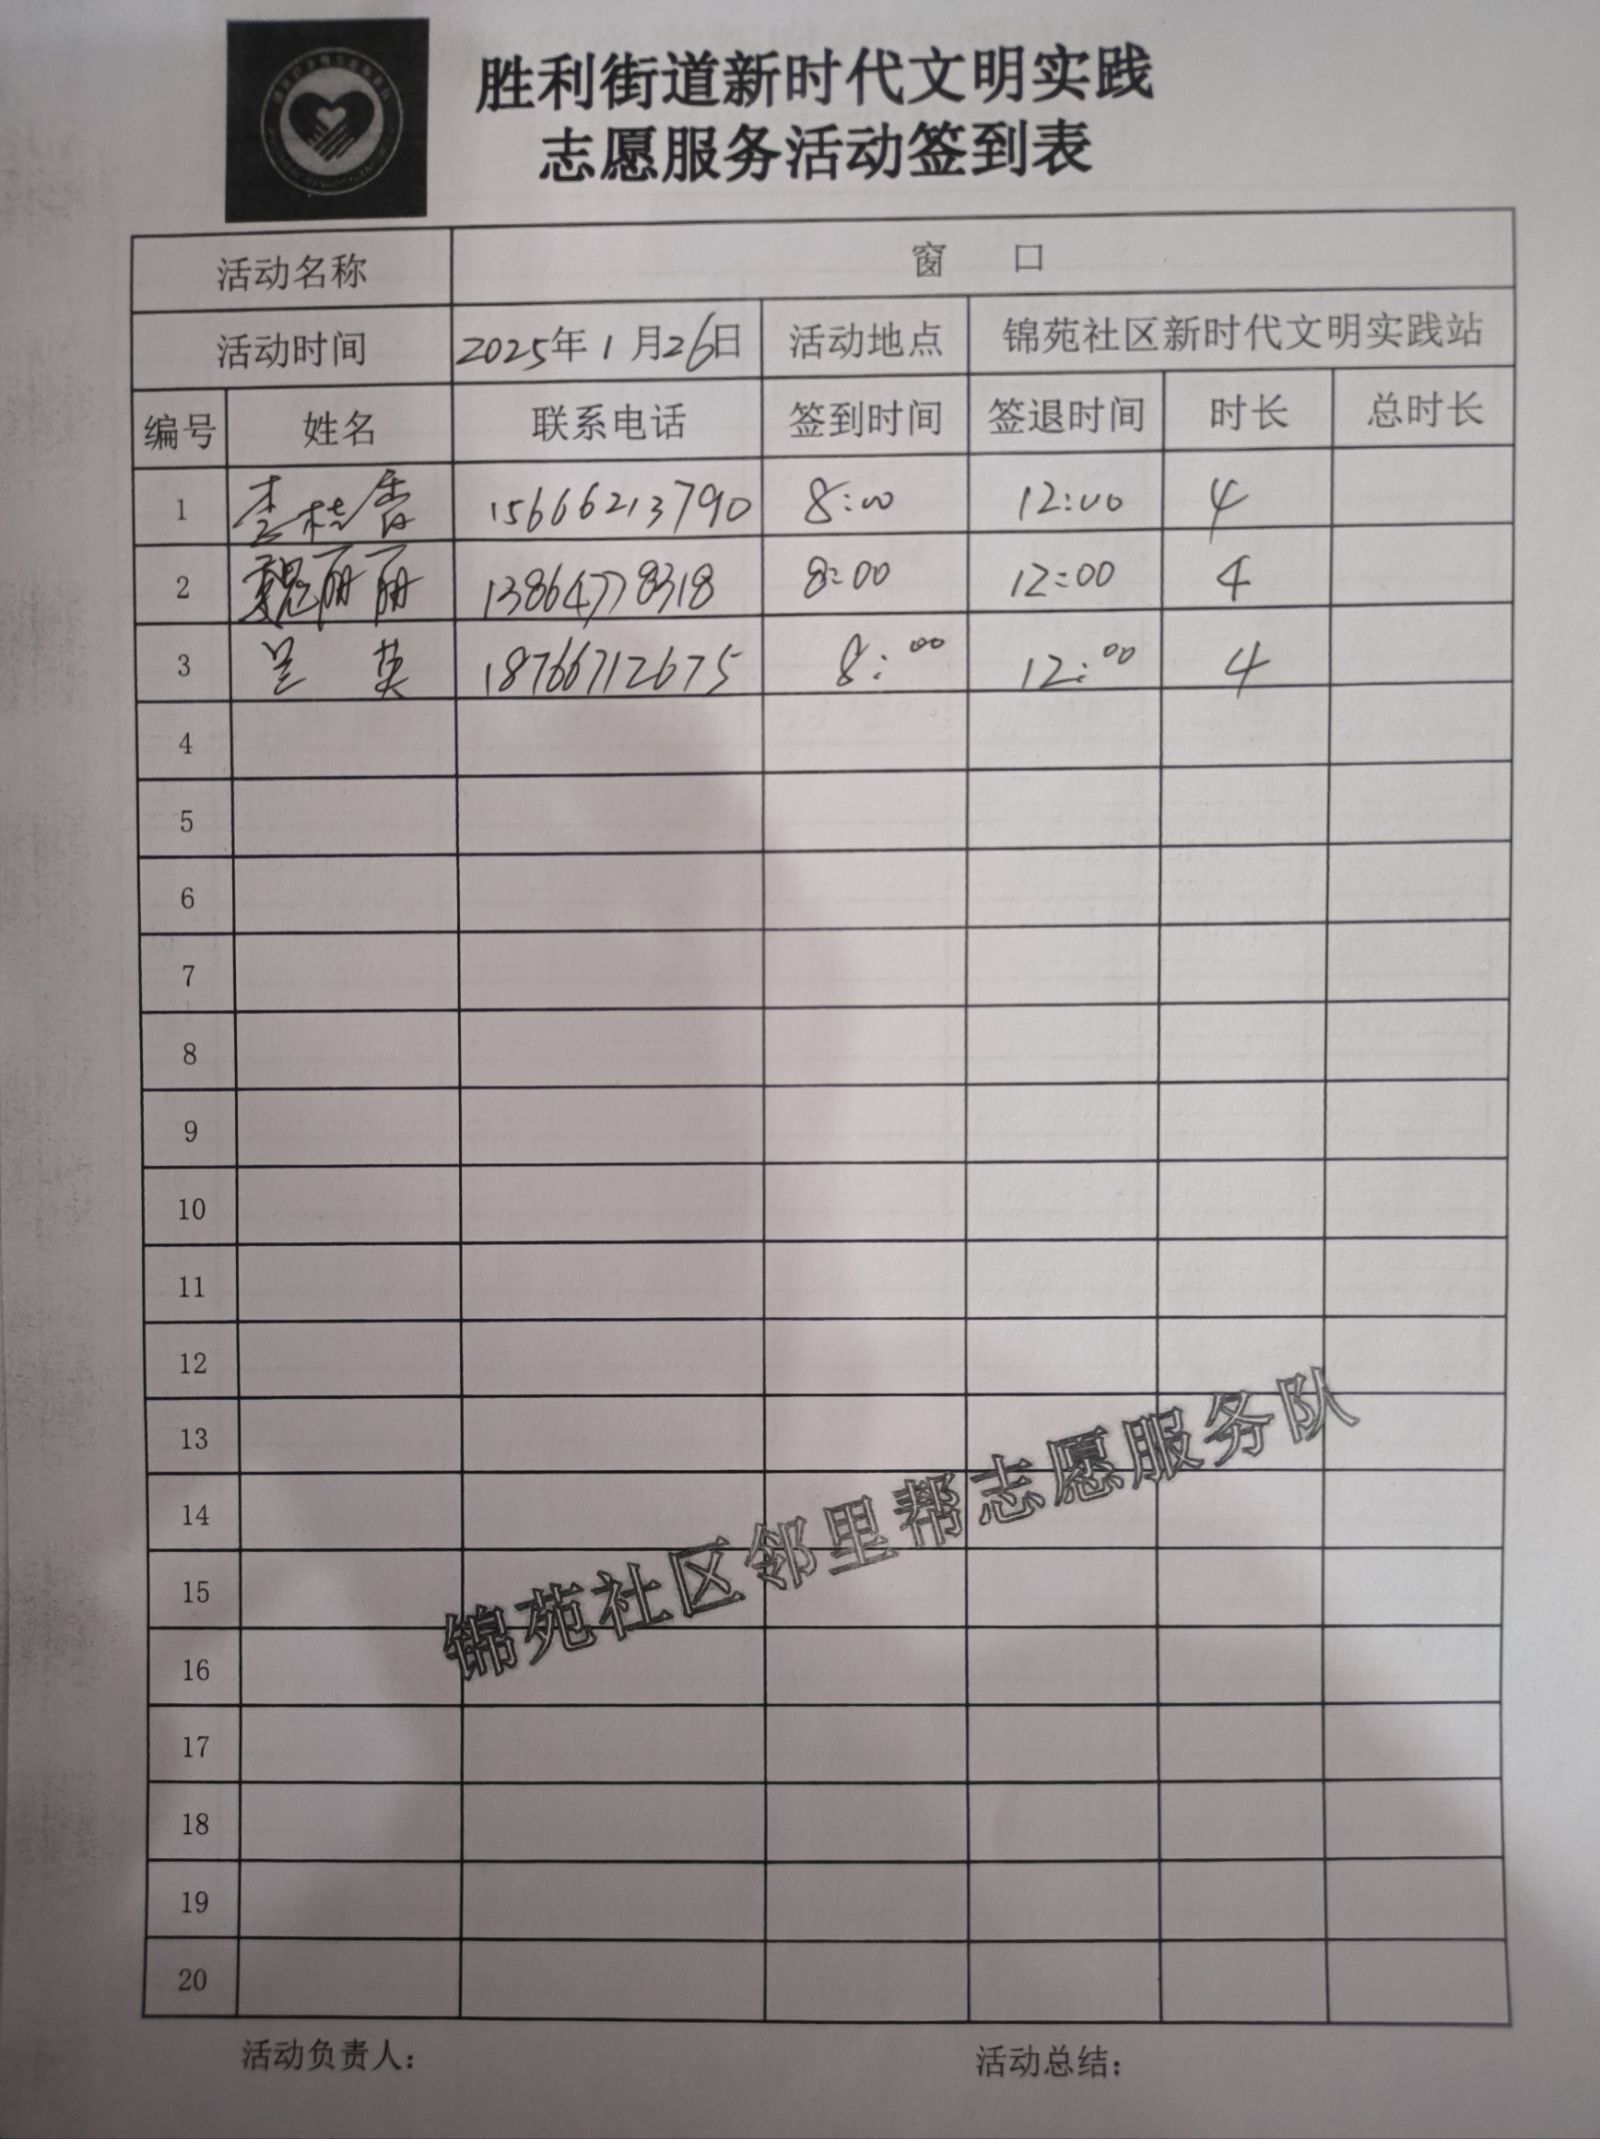 胜利街道新时代文明实践
志愿服务活动签到表
活动名称 窗 口
活动时间 2025年1月26日 活动地点 锦苑社区新时代文明实践站
编号 姓名 联系电话 签到时间 签退时间 时长 总时长
1 李桂香 15666213790 8:00 12:00 4
2 魏丽丽 13864778318 8:00 12:00 4
3 吴英 18766712675 8:00 12:00 4
4
5
6
7
8
9
10
11
12
13
14
15
16
17
18
19
20
锦苑社区邻里帮志愿服务队
活动负责人： 活动总结：